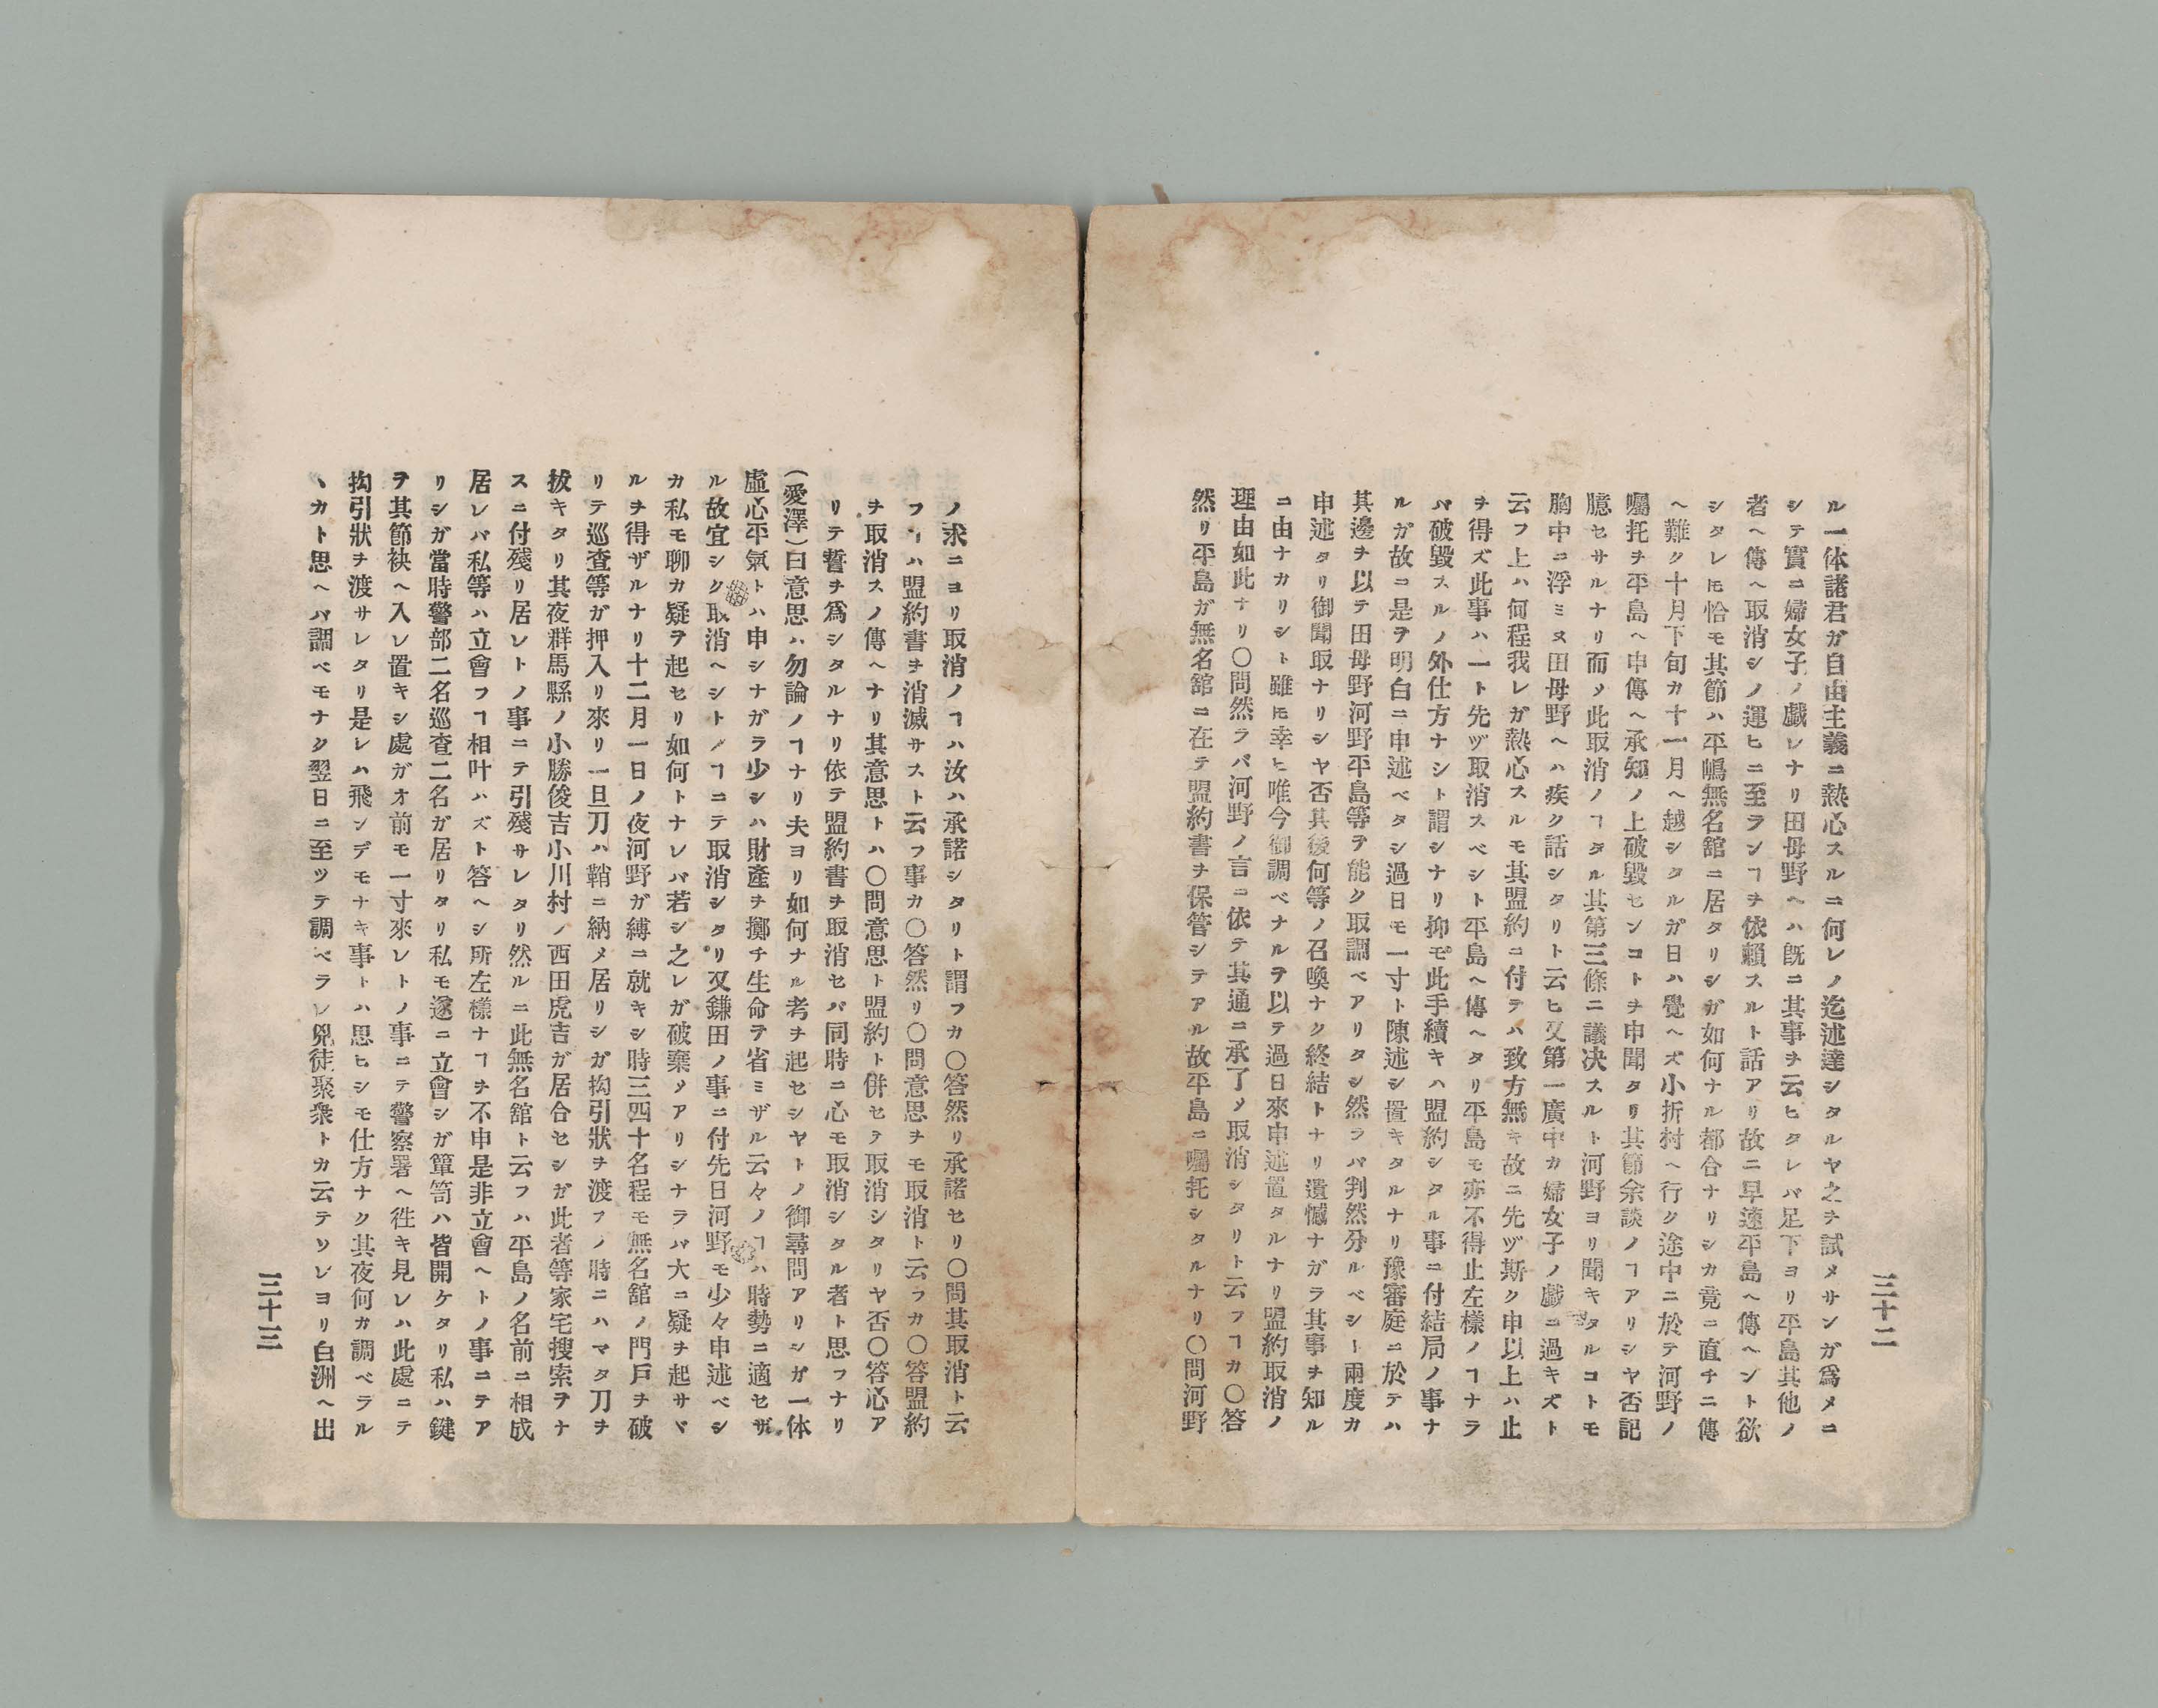 三十二
ル一体諸君ガ自由主義ニ熱心スルニ何レノ迄述達シタルヤ之ヲ試メサンガ爲メニ
シテ實ニ婦女子ノ戯レナリ田母野ヘハ既ニ其事ヲ云ヒタレバ足下ヨリ平島其他ノ
者ヘ傳ヘ取消シノ運ヒニ至ランヿヲ依賴スルト話アリ故ニ早速平島ヘ傳ヘント欲
シタレ𪜈恰モ其節ハ平嶋無名舘ニ居タリシガ如何ナル都合ナリシカ竟ニ直チニ傳
ヘ難ク十月下旬カ十一月ヘ越シタルガ日ハ覺ヘズ小折村ヘ行ク途中ニ於テ河野ノ
囑托ヲ平島ヘ申傳ヘ承知ノ上破毀センコトヲ申聞タリ其節余談ノヿアリシヤ否記
臆セサルナリ而〆此取消ノヿタル其第三條ニ議决スルト河野ヨリ聞キタルコトモ
胸中ニ浮ミヌ田母野ヘハ疾ク話シタリト云ヒ又第一廣中カ婦女子ノ戯ニ過キズト
云フ上ハ何程我レガ熱心スルモ其盟約ニ付テハ致方無キ故ニ先ヅ斯ク申以上ハ止
ヲ得ズ此事ハ一ト先ヅ取消スベシト平島ヘ傳ヘタリ平島モ亦不得止左樣ノヿナラ
バ破毀スルノ外仕方ナシト謂シナリ抑モ此手續キハ盟約シタル事ニ付結局ノ事ナ
ルガ故ニ是ヲ明白ニ申述ベタシ過日モ一寸ト陳述シ置キタルナリ豫審庭ニ於テハ
其邊ヲ以テ田母野河野平島等ヲ能ク取調ベアリタシ然ラバ判然分ルベシト兩度カ
申述タリ御聞取ナリシヤ否其後何等ノ召喚ナク終結トナリ遺憾ナガラ其事ヲ知ル
ニ由ナカリシト雖𪜈幸ヒ唯今御調ベナルヲ以テ過日來申述置タルナリ盟約取消ノ
理由如此ナリ〇問然ラバ河野ノ言ニ依テ其通ニ承了〆取消シタリト云フヿカ〇答
然リ平島ガ無名舘ニ在テ盟約書ヲ保管シテアル故平島ニ囑托シタルナリ〇問河野
ノ求ニヨリ取消ノヿハ汝ハ承諾シタリト謂フカ〇答然リ承諾セリ〇問其取消ト云
フヿハ盟約書ヲ消滅サスト云フ事カ〇答然リ〇問意思ヲモ取消ト云フカ〇答盟約
ヲ取消スノ傳ヘナリ其意思トハ〇問意思ト盟約ト併セテ取消シタリヤ否〇答心ア
リテ誓ヲ爲シタルナリ依テ盟約書ヲ取消セバ同時ニ心モ取消シタル者ト思フナリ
(愛澤)曰意思ハ勿論ノヿナリ夫ヨリ如何ナル考ヲ起セシヤトノ御尋問アリシガ一体
虛心平氣トハ申シナガラ少シハ財產ヲ擲チ生命ヲ省ミザル云々ノヿハ時勢ニ適セザ
ル故宜シク取消ヘシトノヿニテ取消シタリ又鎌田ノ事ニ付先日河野モ少々申述ベシ
カ私モ聊カ疑ヲ起セリ如何トナレバ若シ之レガ破棄〆アリシナラバ大ニ疑ヲ起サヾ
ルヲ得ザルナリ十二月一日ノ夜河野ガ縛ニ就キシ時三四十名程モ無名舘ノ門戸ヲ破
リテ巡查等ガ押入リ來リ一旦刀ハ鞘ニ納メ居リシガ拘引狀ヲ渡フノ時ニハマタ刀ヲ
拔キタリ其夜群馬縣ノ小勝俊吉小川村ノ西田虎吉ガ居合セシガ此者等家宅搜索ヲナ
スニ付殘リ居レトノ事ニテ引殘サレタリ然ルニ此無名舘ト云フハ平島ノ名前ニ相成
居レバ私等ハ立會フヿ相叶ハズト答ヘシ所左樣ナヿヲ不申是非立會ヘトノ事ニテア
リシガ當時警部二名巡查二名ガ居リタリ私モ遂ニ立會シガ簞笥ハ皆開ケタリ私ハ鍵
ヲ其節袂ヘ入レ置キシ處ガオ前モ一寸來レトノ事ニテ警察署ヘ徃キ見レハ此處ニテ
拘引狀ヲ渡サレタリ是レハ飛ンデモナキ事トハ思ヒシモ仕方ナク其夜何カ調ベラル
ヽカト思ヘバ調ベモナク翌日ニ至ツテ調ベラレ兇徒聚衆トカ云テソレヨリ白洲ヘ出
三十三